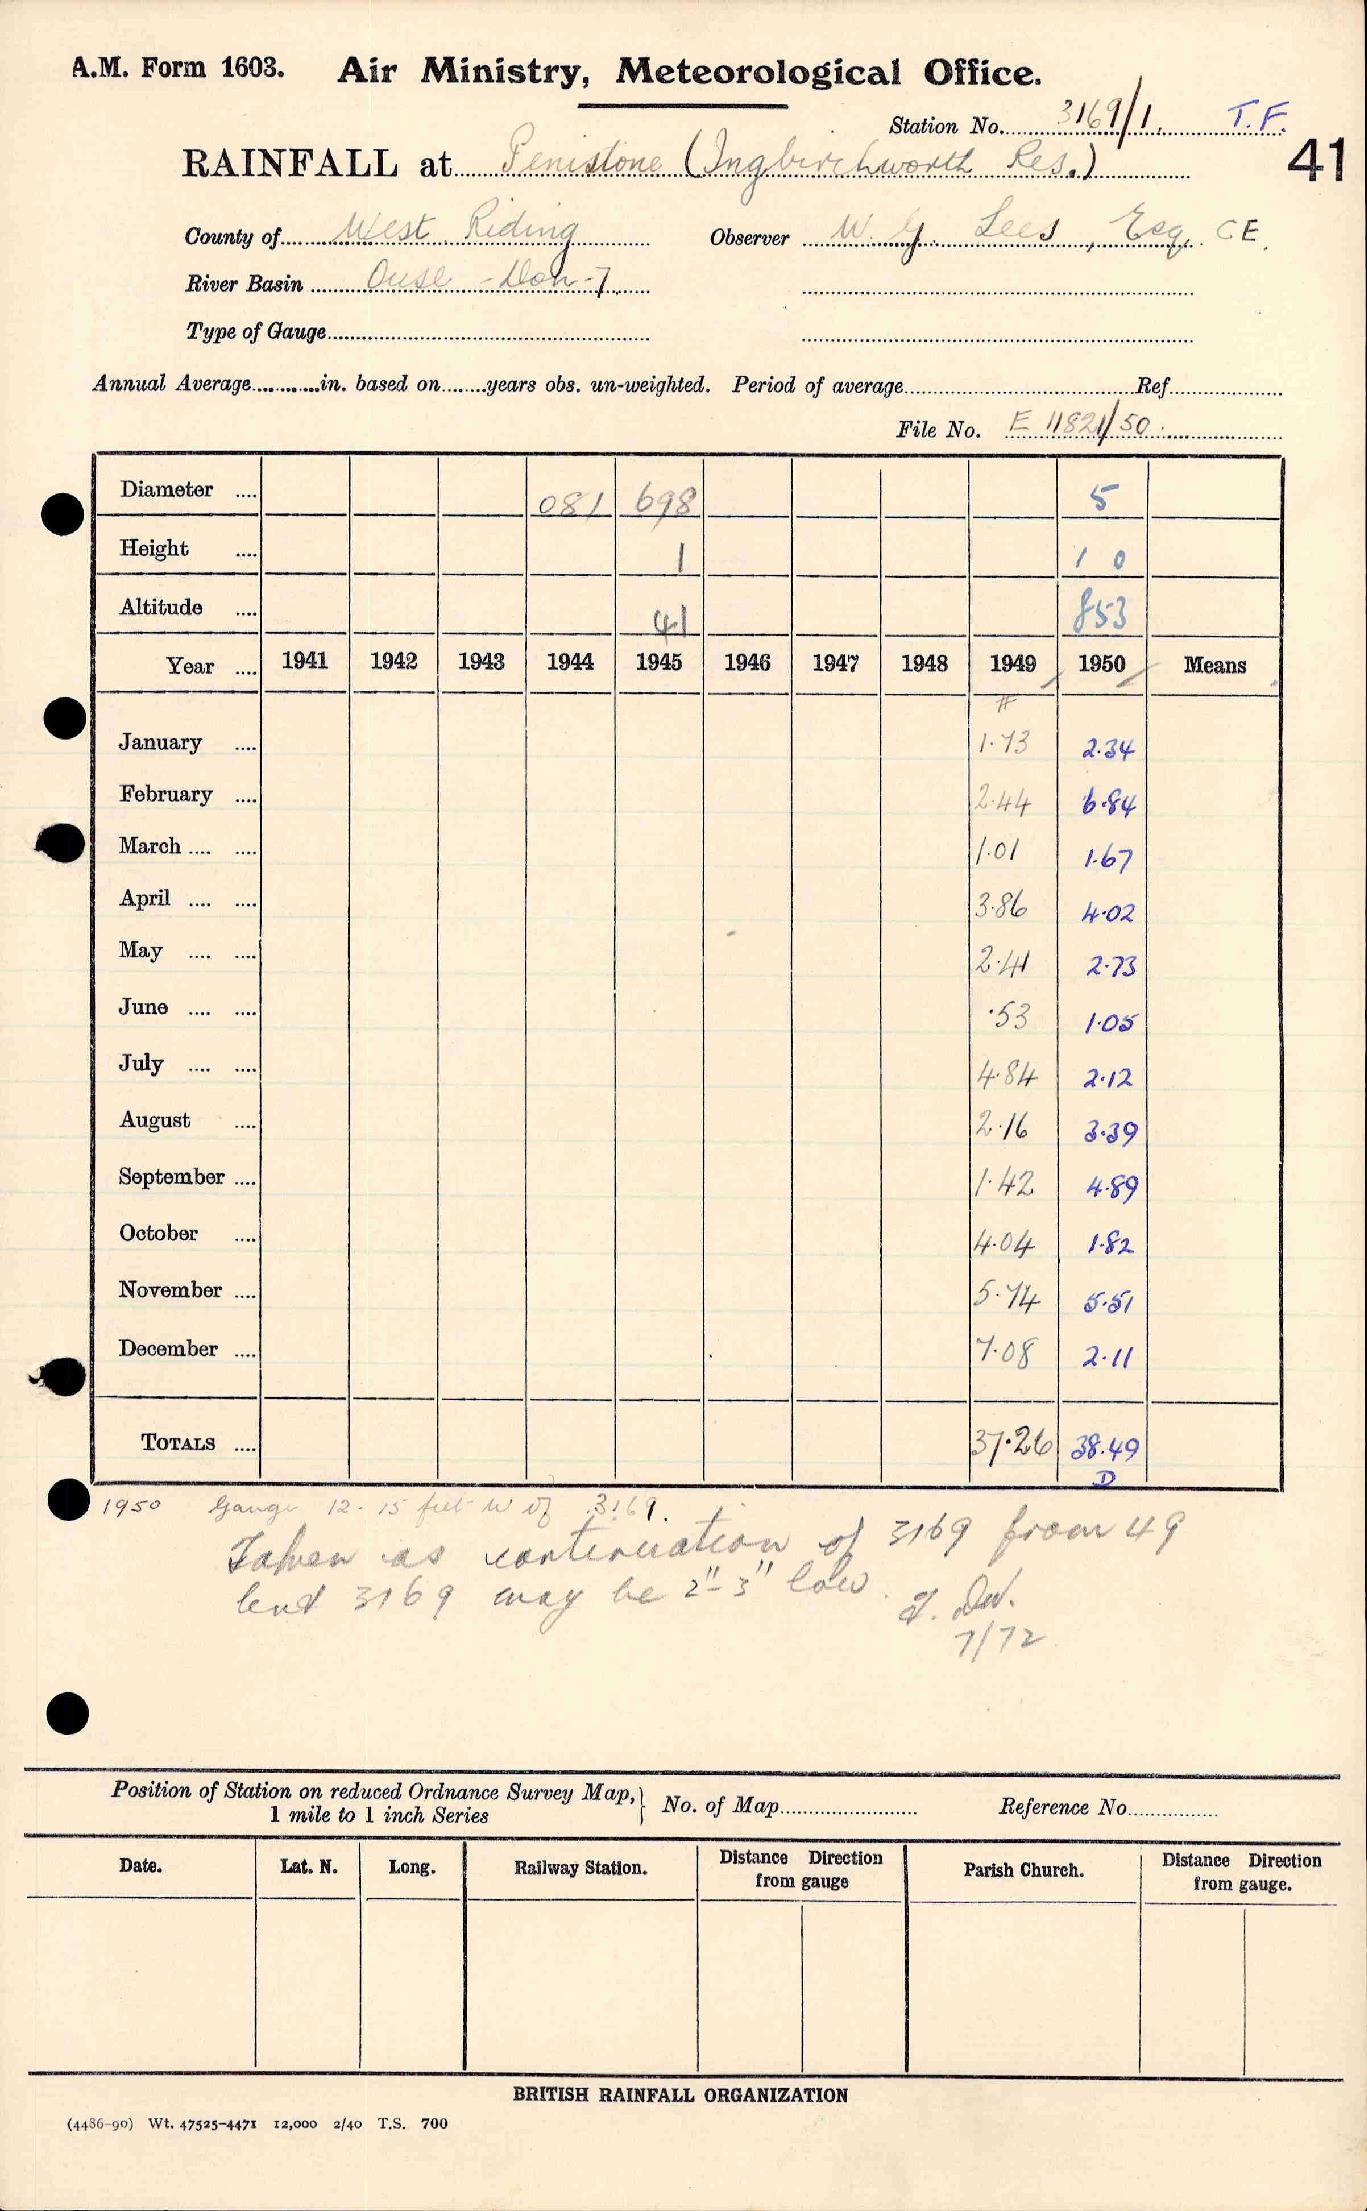 A.M. Form 1603. Air Ministry, Meteorological Office.
Station No. 3169/1. T.F.
41
RAINFALL at Penistone (Ingbirchworth Res.)
County of West Riding Observer W. G. Lees, Esq. C E.
River Basin Ouse - Don-7
Type of Gauge
Annual Average in. based on years obs. un-weighted. Period of average Ref
File No. E 11821/50
Diameter 081 698 5
Height 1 1 0
Altitude 41 853
Year 1941 1942 1943 1944 1945 1946 1947 1948 1949 1950 Means
#
January 1.73 2.34
February 2.44 6.84
March 1.01 1.67
April 3.86 4.02
May 2.41 2.73
June .53 1.05
July 4.84 2.12
August 2.16 3.39
September 1.42 4.89
October 4.04 1.82
November 5.74 5.51
December 7.08 2.11
TOTALS 37.26 38.49
D
1950 Gauge 12-15 feet W of 3169.
Taken as continuation of 3169 from 49
but 3169 may be 2"-3" low.
7/72
Position of Station on reduced Ordnance Survey Map, } No. of Map Reference No
1 mile to 1 inch Series
Date. Lat. N. Long. Railway Station. Distance Direction from gauge Parish Church. Distance Direction from gauge.
BRITISH RAINFALL ORGANIZATION
(4486-90) Wt. 47525-4471 12,000 2/40 T.S. 700